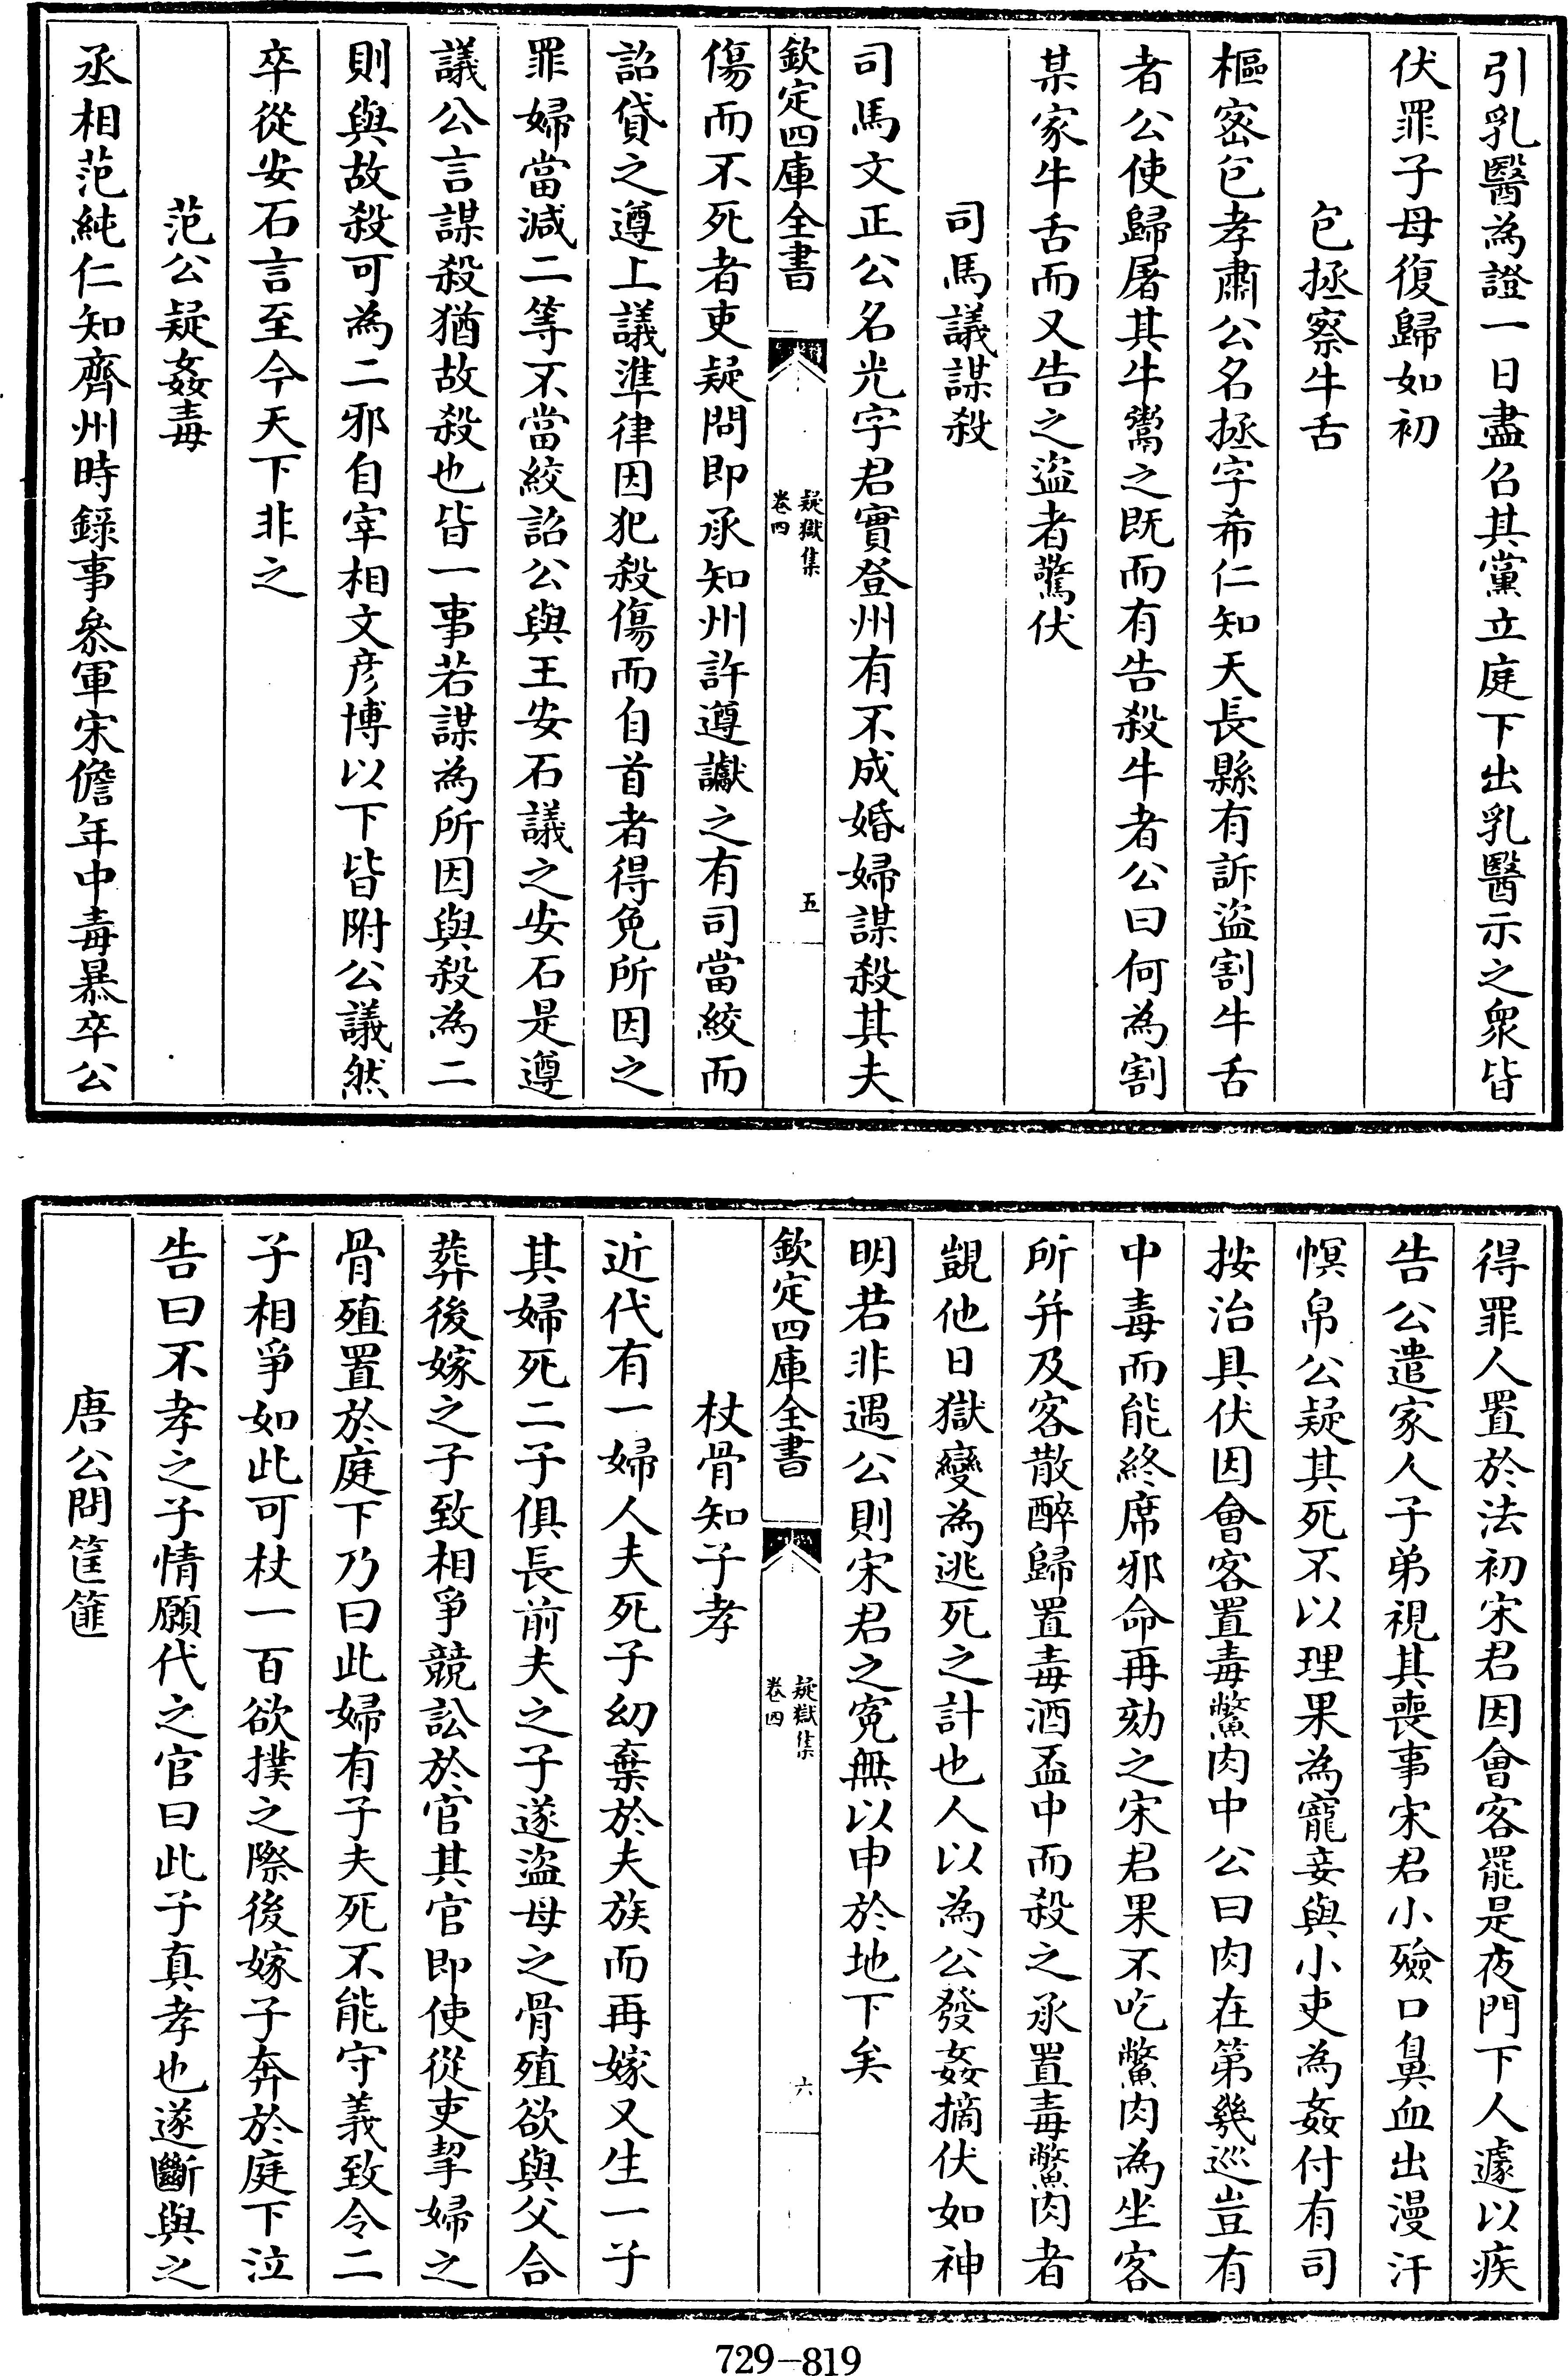 引乳醫為證一日盡召其黨立庭下出乳醫示之衆皆
伏罪子母復歸如初
包拯察牛舌
樞密包孝肅公名拯字希仁知天長縣有訴盜割牛舌
者公使歸屠其牛鬻之既而有告殺牛者公曰何為割
某家牛舌而又告之盜者驚伏
司馬議謀殺
司馬文正公名光字君實登州有不成婚婦謀殺其夫
欽定四庫全書
疑獄集
卷四
五
傷而不死者吏疑問即承知州許遵讞之有司當絞而
詔貸之遵上議準律因犯殺傷而自首者得免所因之
罪婦當減二等不當絞詔公與王安石議之安石是遵
議公言謀殺猶故殺也皆一事若謀為所因與殺為二
則與故殺可為二邪自宰相文彥博以下皆附公議然
卒從安石言至今天下非之
范公疑姦毒
丞相范純仁知齊州時錄事叅軍宋儋年中毒暴卒公
得罪人置於法初宋君因會客罷是夜門下人遽以疾
告公遣家人子弟視其喪事宋君小殮口鼻血出漫汙
幎帛公疑其死不以理果為寵妾與小吏為姦付有司
按治具伏因會客置毒鱉肉中公曰肉在第幾巡豈有
中毒而能終席邪命再劾之宋君果不吃鱉肉為坐客
所并及客散醉歸置毒酒盃中而殺之承置毒鱉肉者
覬他日獄變為逃死之計也人以為公發姦摘伏如神
明若非遇公則宋君之寃無以申於地下矣
欽定四庫全書
疑獄集
卷四
六
杖骨知子孝
近代有一婦人夫死子幼棄於夫族而再嫁又生一子
其婦死二子俱長前夫之子遂盜母之骨殖欲與父合
葬後嫁之子致相爭競訟於官其官即使從吏挈婦之
骨殖置於庭下乃曰此婦有子夫死不能守義致令二
子相爭如此可杖一百欲撲之際後嫁子奔於庭下泣
告曰不孝之子情願代之官曰此子真孝也遂斷與之
唐公問筐篚
729-819